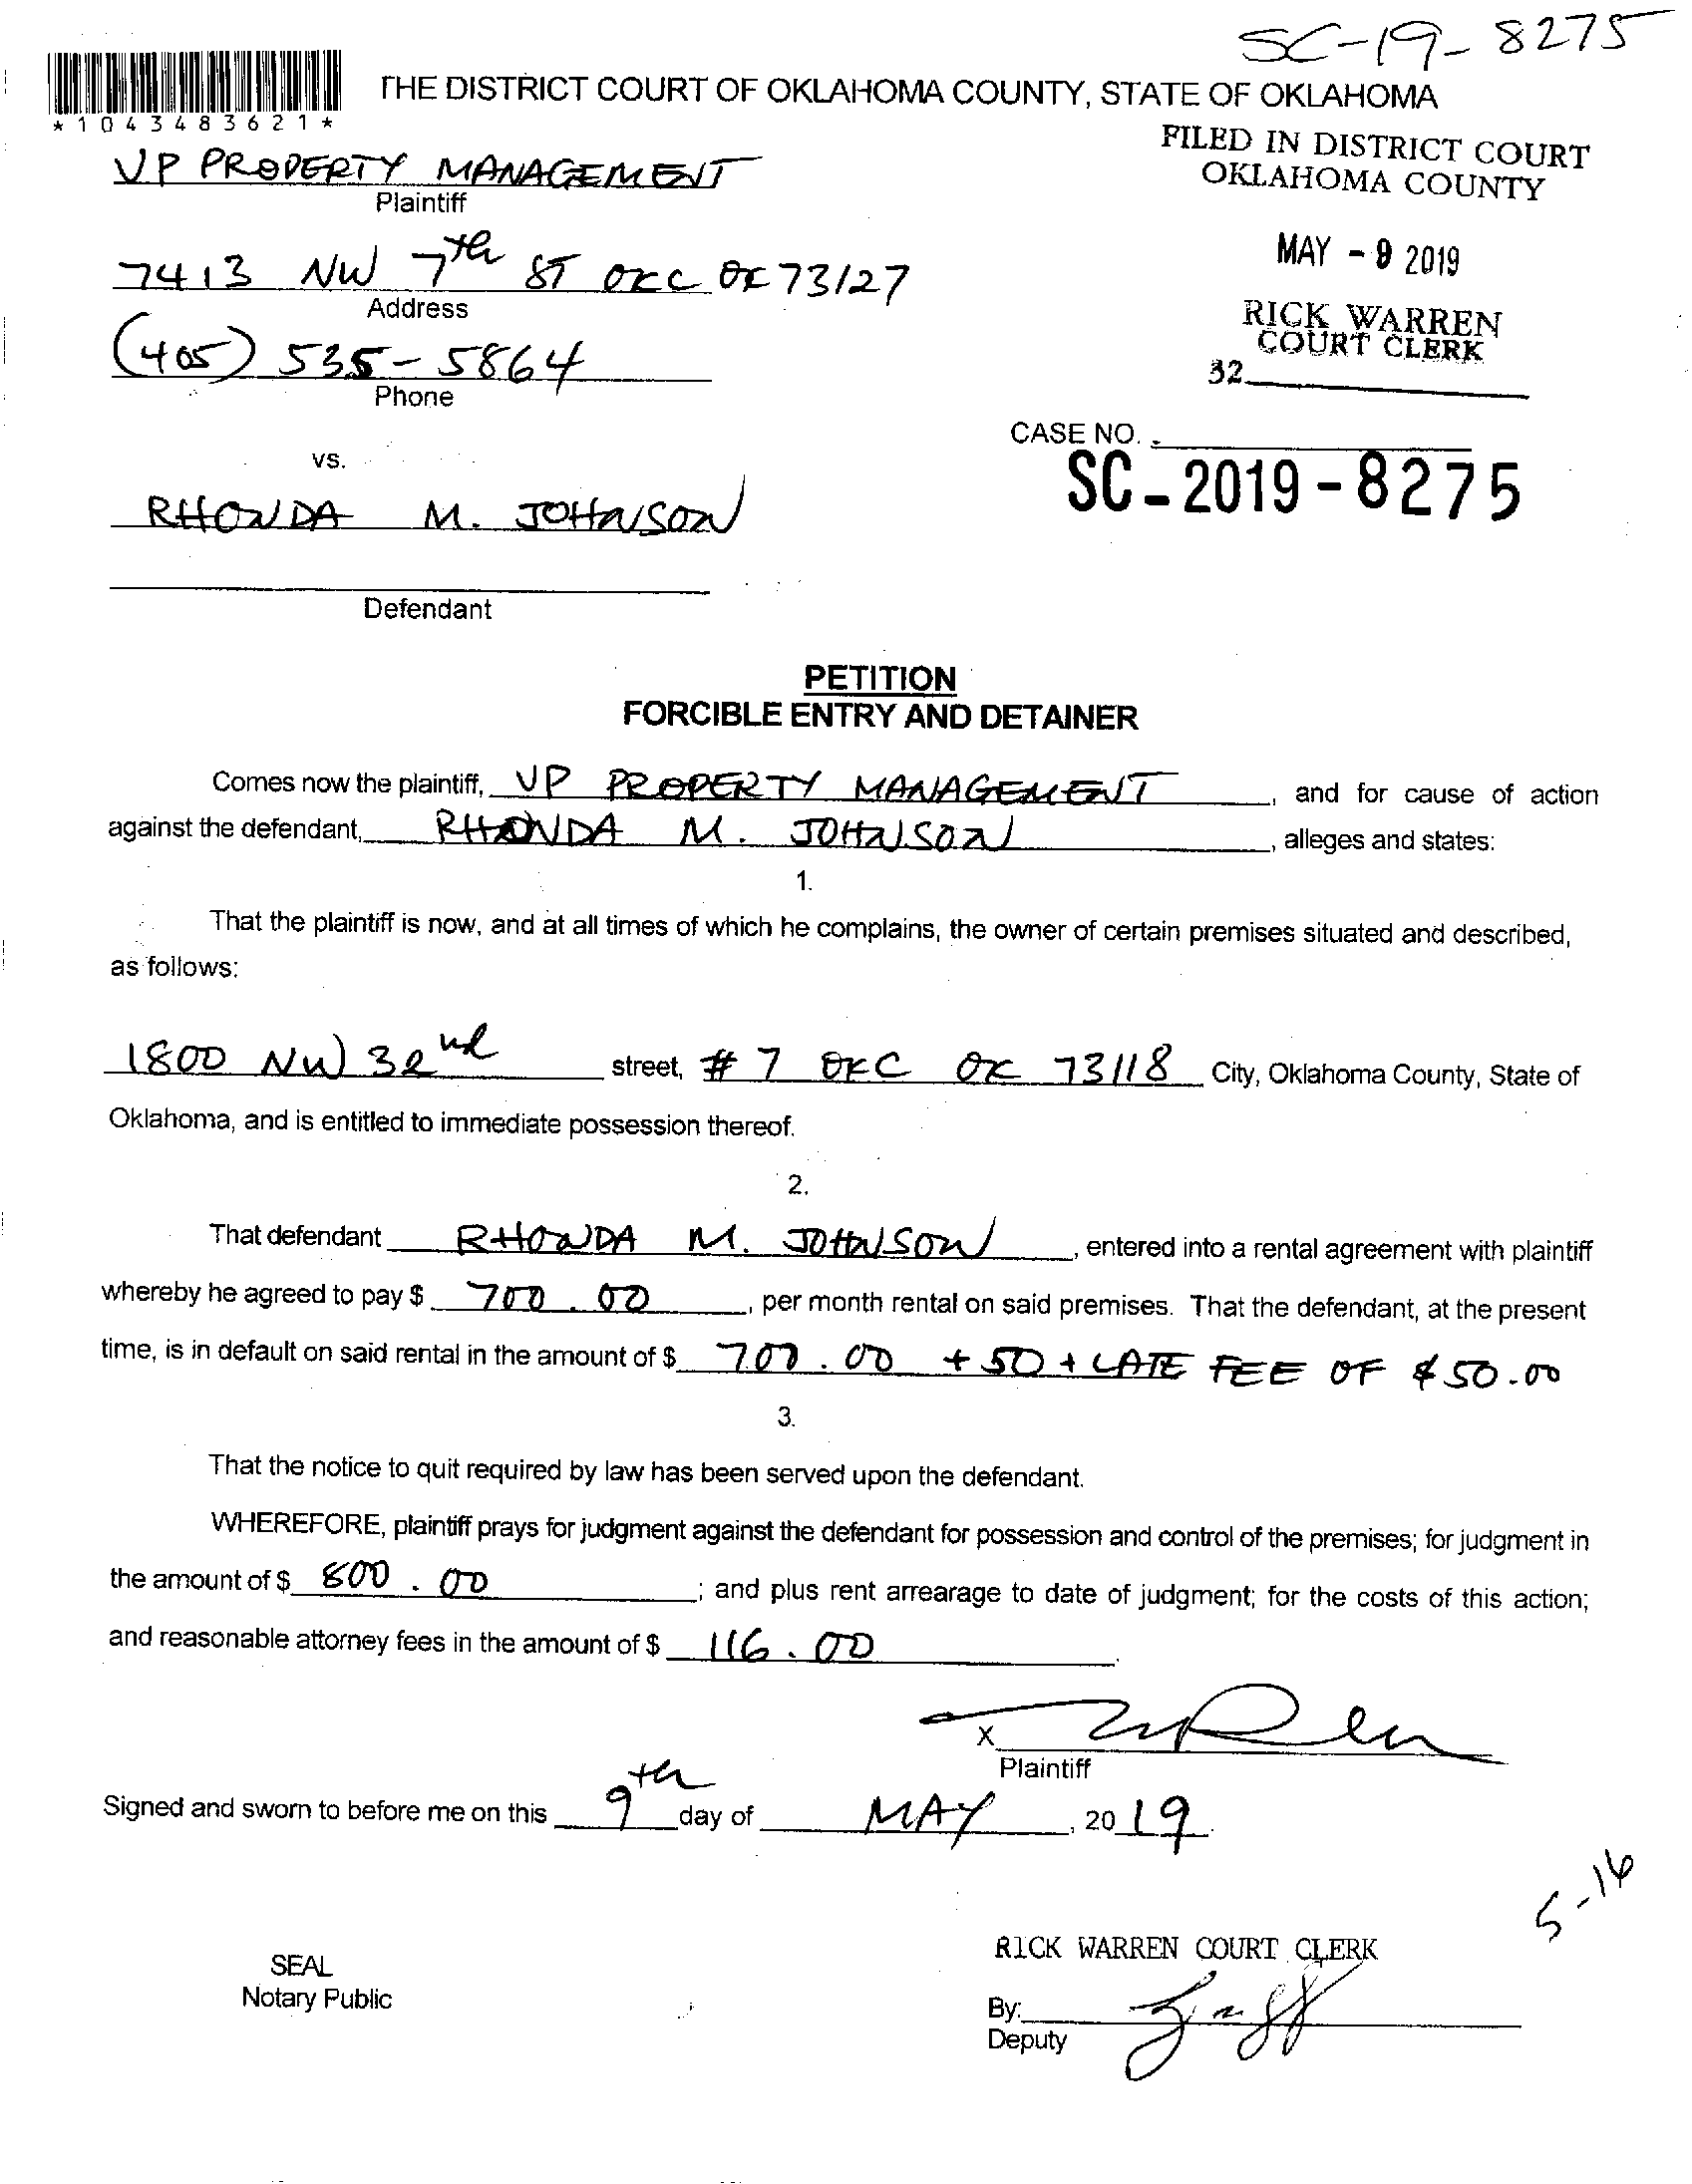 SC-19-8275
THE DISTRICT COURT OF OKLAHOMA COUNTY, STATE OF OKLAHOMA
*1043483621*
FILED IN DISTRICT COURT
OKLAHOMA COUNTY
VP PROPERTY MANAGEMENT
Plaintiff
MAY - 9 2019
7413 NW 7th ST OKC OK 73127
Address
RICK WARREN
COURT CLERK
32
(405) 535-5864
Phone
CASE NO.
SC-2019-8275
vs.
RHONDA M. JOHNSON
Defendant
PETITION
FORCIBLE ENTRY AND DETAINER
Comes now the plaintiff, VP PROPERTY MANAGEMENT, and for cause of action
against the defendant, RHONDA M. JOHNSON, alleges and states:
1.
That the plaintiff is now, and at all times of which he complains, the owner of certain premises situated and described,
as follows:
1800 NW 32nd street, # 7 OKC OK 73118 City, Oklahoma County, State of
Oklahoma, and is entitled to immediate possession thereof.
2.
That defendant RHONDA M. JOHNSON, entered into a rental agreement with plaintiff
whereby he agreed to pay $ 700.00, per month rental on said premises. That the defendant, at the present
time, is in default on said rental in the amount of $ 700.00 + 50 + LATE FEE OF $50.00
3.
That the notice to quit required by law has been served upon the defendant.
WHEREFORE, plaintiff prays for judgment against the defendant for possession and control of the premises; for judgment in
the amount of $ 800.00; and plus rent arrearage to date of judgment; for the costs of this action;
and reasonable attorney fees in the amount of $ 116.00.
X
Plaintiff
Signed and sworn to before me on this 9th day of MAY, 2019.
5-16
RICK WARREN COURT CLERK
SEAL
Notary Public
By:
Deputy